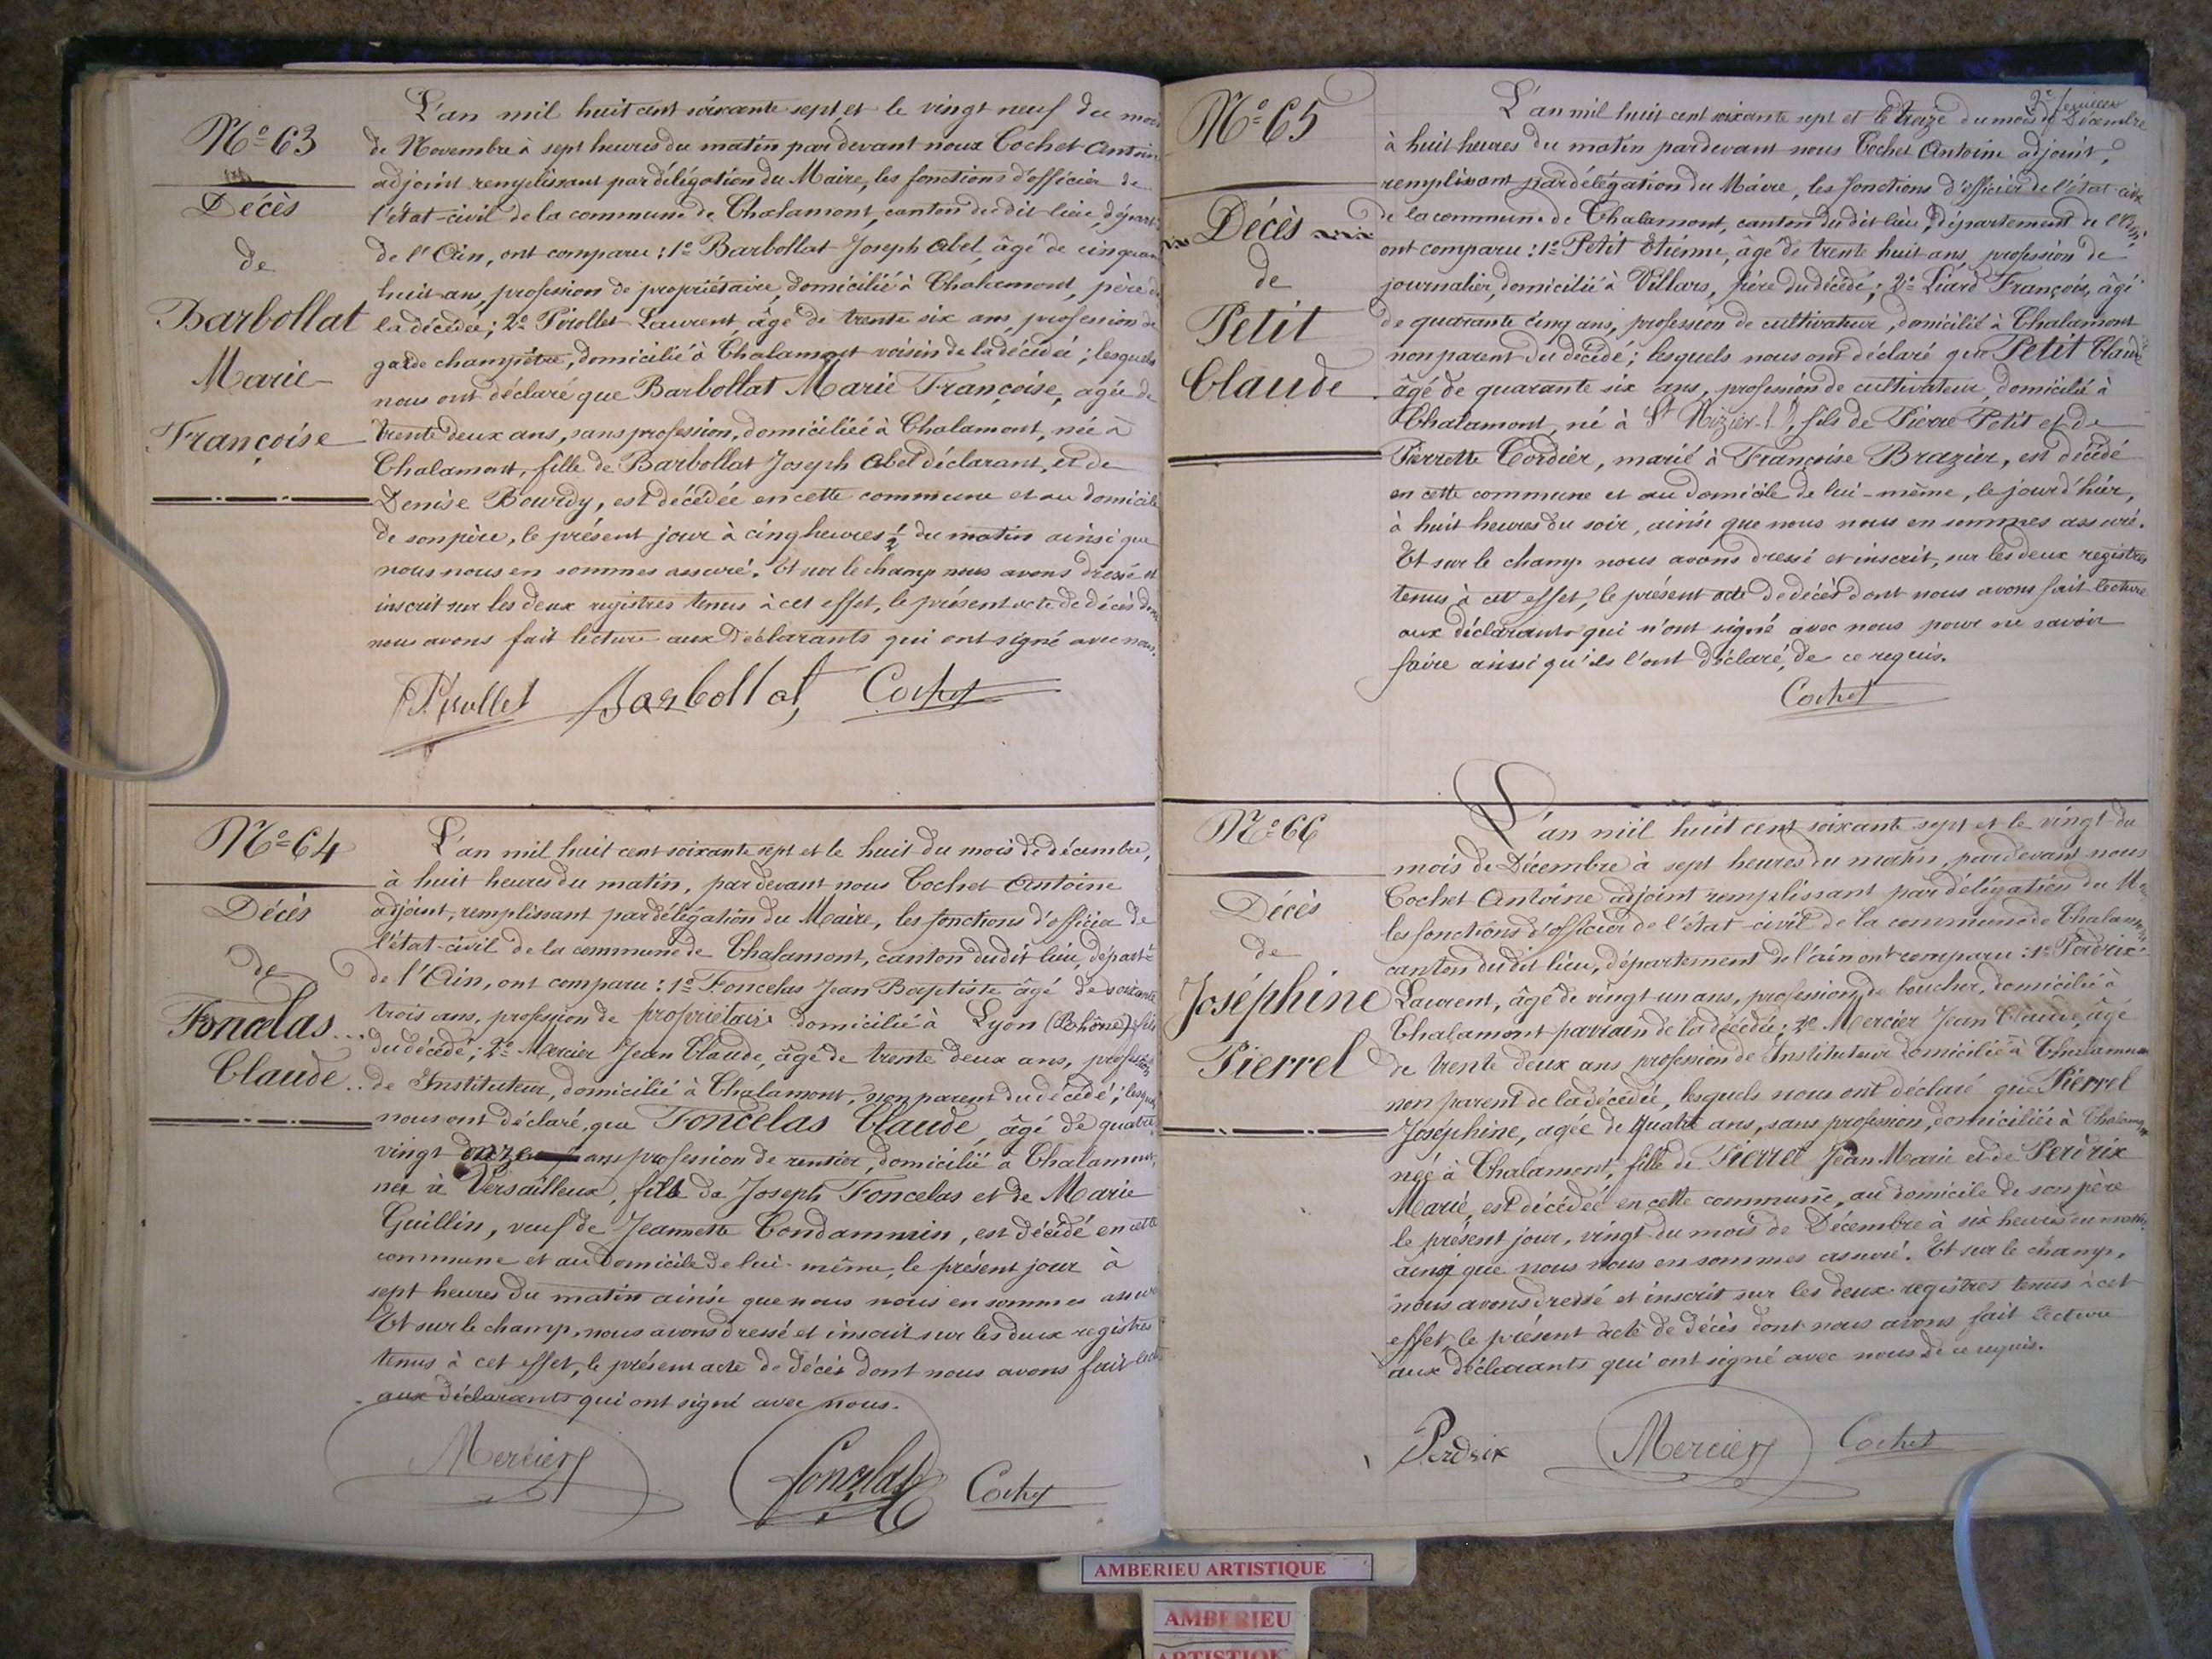 Nº 63
Décès
de
Barbollat
Marie
Françoise
L'an mil huit cent soixante sept et le vingt neuf du mois
de Novembre à sept heures du matin par devant nous Cochet Antoine
adjoint remplissant par délégation du Maire, les fonctions d'officier de
l'état-civil de la commune de Chalamont, canton du dit lieu, départ.
de l'Ain, ont comparu : 1º Barbollat Joseph Abel, âgé de cinquante
huit ans, profession de propriétaire, domicilié à Chalamont, père de
la décédée ; 2º Pirollet Laurent, âgé de trente six ans, profession de
garde champêtre, domicilié à Chalamont voisin de la décédée ; lesquels
nous ont déclaré que Barbollat Marie Françoise, agée de
trente deux ans, sans profession, domiciliée à Chalamont, née à
Chalamont, fille de Barbollat Joseph Abel déclarant, et de
Denise Bourdy, est décédée en cette commune et au domicile
de son père, le présent jour à cinq heures ½ du matin ainsi que
nous nous en sommes assuré. Et sur le champ nous avons dressé et
inscrit sur les deux registres tenus à cet effet, le présent acte de décès dont
nous avons fait lecture aux déclarants qui ont signé avec nous.
Pirollet Barbollat Cochet
Nº 64
Décès
de
Foncelas
Claude
L'an mil huit cent soixante sept et le huit du mois de décembre,
à huit heures du matin, par devant nous Cochet Antoine
adjoint, remplissant par délégation du Maire, les fonctions d'officier de
l'état-civil de la commune de Chalamont, canton du dit lieu, départ.t
de l'Ain, ont comparu : 1º Foncelas Jean Baptiste âgé de soixante
trois ans, profession de propriétaire domicilié à Lyon (Rhône) fils
du décédé ; 2º Mercier Jean Claude, âgé de trente deux ans, profession
de Instituteur, domicilié à Chalamont, non parent du décédé ; lesquels
nous ont déclaré que Foncelas Claude, âgé de quatre
vingt onze ans profession de rentier, domicilié à Chalamont,
né à Versailleux, fils de Joseph Foncelas et de Marie
Guillin, veuf de Jeannette Condammin, est décédé en cette
commune et au domicile de lui-même, le présent jour à
sept heures du matin ainsi que nous nous en sommes assuré
Et sur le champ, nous avons dressé et inscrit sur les deux registres
tenus à cet effet, le présent acte de décès dont nous avons fait lecture
aux déclarants qui ont signé avec nous.
Mercier Foncelas Cochet
3e feuillet
Nº 65
Décès
de
Petit
Claude
L'an mil huit cent soixante sept et le treize du mois de Décembre
à huit heures du matin par devant nous Cochet Antoine adjoint,
remplissant par délégation du Maire, les fonctions d'officier de l'état civil
de la commune de Chalamont, canton du dit lieu, département de l'Ain,
ont comparu : 1º Petit Etienne, âgé de trente huit ans, profession de
journalier, domicilié à Villars, frère du décédé ; 2º Liard François, âgé
de quarante cinq ans, profession de cultivateur, domicilié à Chalamont
non parent du décédé ; lesquels nous ont déclaré que Petit Claude
âgé de quarante six ans, profession de cultivateur, domicilié à
Chalamont, né à St Nizier-l-D, fils de Pierre Petit et de
Pierrette Cordier, marié à Françoise Brazier, est décédé
en cette commune et au domicile de lui-même, le jour d'hier,
à huit heures du soir, ainsi que nous nous en sommes assuré.
Et sur le champ nous avons dressé et inscrit, sur les deux registres
tenus à cet effet, le présent acte de décès dont nous avons fait lecture
aux déclarants qui n'ont signé avec nous pour ne savoir
faire ainsi qu'ils l'ont déclaré, de ce requis.
Cochet
Nº 66
Décès
de
Joséphine
Pierrel
L'an mil huit cent soixante sept et le vingt du
mois de Décembre à sept heures du matin, par devant nous
Cochet Antoine adjoint remplissant par délégation du M
les fonctions d'officier de l'état-civil de la commune de Chalamont
canton du dit lieu, département de l'ain ont comparu : 1º Perdrix
Laurent, âgé de vingt un ans, profession de boucher, domicilié à
Chalamont parrain de la décédée ; 2º Mercier Jean Claude, âgé
de trente deux ans profession de Instituteur domicilié à Chalamont
non parent de la décédée, lesquels nous ont déclaré que Pierrel
Joséphine, agée de quatre ans, sans profession, domiciliée à Chalamont
née à Chalamont, fille de Pierrel Jean Marie et de Perdrix
Marie, est décédée en cette commune, au domicile de son père
le présent jour, vingt du mois de Décembre à six heures du matin,
ainsi que nous nous en sommes assuré. Et sur le champ,
nous avons dressé et inscrit sur les deux registres tenus à cet
effet le présent acte de décès dont nous avons fait lecture
aux déclarants qui ont signé avec nous de ce requis.
Perdrix Mercier Cochet
AMBERIEU ARTISTIQUE
AMBERIEU
ARTISTIQUE